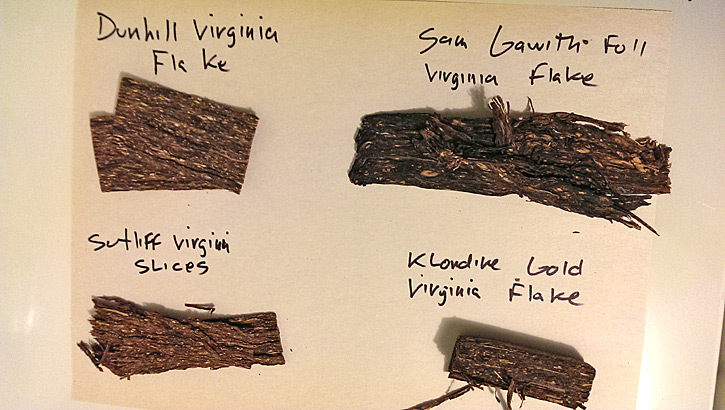 Dunhill Virginia
Flake
Sam Gawith Full
Virginia Flake
Sutliff Virginia
SLICES
Klondike Gold
Virginia Flake